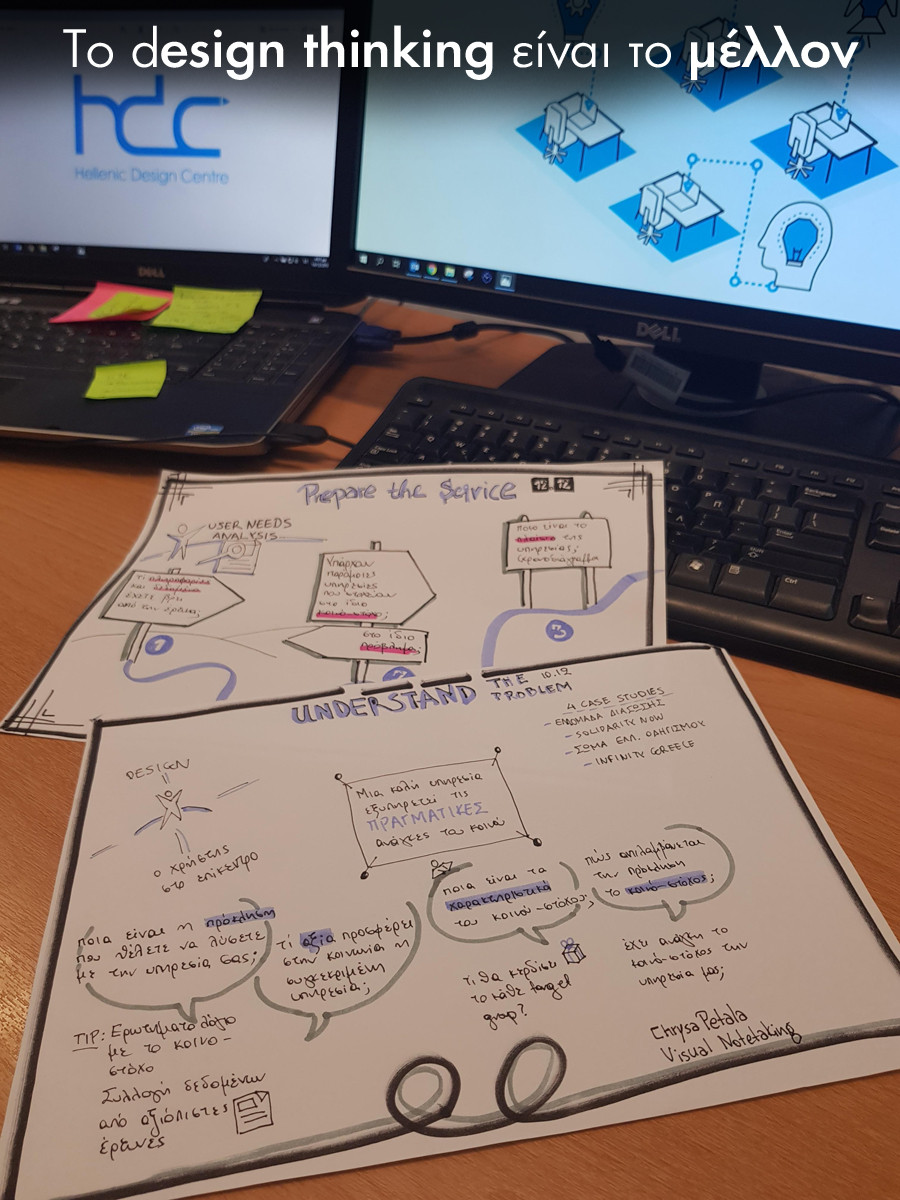 Το design thinking είναι το μέλλον
hdc
Hellenic Design Centre
DELL
DELL
Backspace
Enter
Shift
Ctrl
Prepare the Service 12 12
USER NEEDS
ANALYSIS
Τι πληροφορίες
και δεδομένα
έχετε βρει
από την έρευνα;
1
Υπάρχουν
παρόμοιες
υπηρεσίες
που στοχεύουν
στο ίδιο
κοινό-στόχο;
στο ίδιο
πρόβλημα;
2
Ποιο είναι το
πλαίσιο της
υπηρεσίας;
Χρονοδιάγραμμα
3
UNDERSTAND THE PROBLEM 10.12
4 CASE STUDIES
- ΕΛΛ. ΟΜΑΔΑ ΔΙΑΣΩΣΗΣ
- SOLIDARITY NOW
- ΣΩΜΑ ΕΛΛ. ΟΔΗΓΙΣΜΟΥ
- INFINITY GREECE
DESIGN
ο χρήστης
στο επίκεντρο
Μια καλή υπηρεσία
εξυπηρετεί τις
ΠΡΑΓΜΑΤΙΚΕΣ
ανάγκες του κοινού
ποια είναι η πρόκληση
που θέλετε να λύσετε
με την υπηρεσία σας;
τί αξία προσφέρει
στην κοινωνία η
συγκεκριμένη
υπηρεσία;
ποια είναι τα
χαρακτηριστικά
του κοινού-στόχου;
πώς αντιλαμβάνεται
την πρόκληση
το κοινό-στόχος;
τι θα κερδίσει
το κάθε target
group?
έχει ανάγκη το
κοινό-στόχος την
υπηρεσία μας;
TIP: Ερωτηματολόγιο
με το κοινό-
στόχο
Συλλογή δεδομένων
από αξιόπιστες
έρευνες
Chrysa Petala
Visual Notetaking